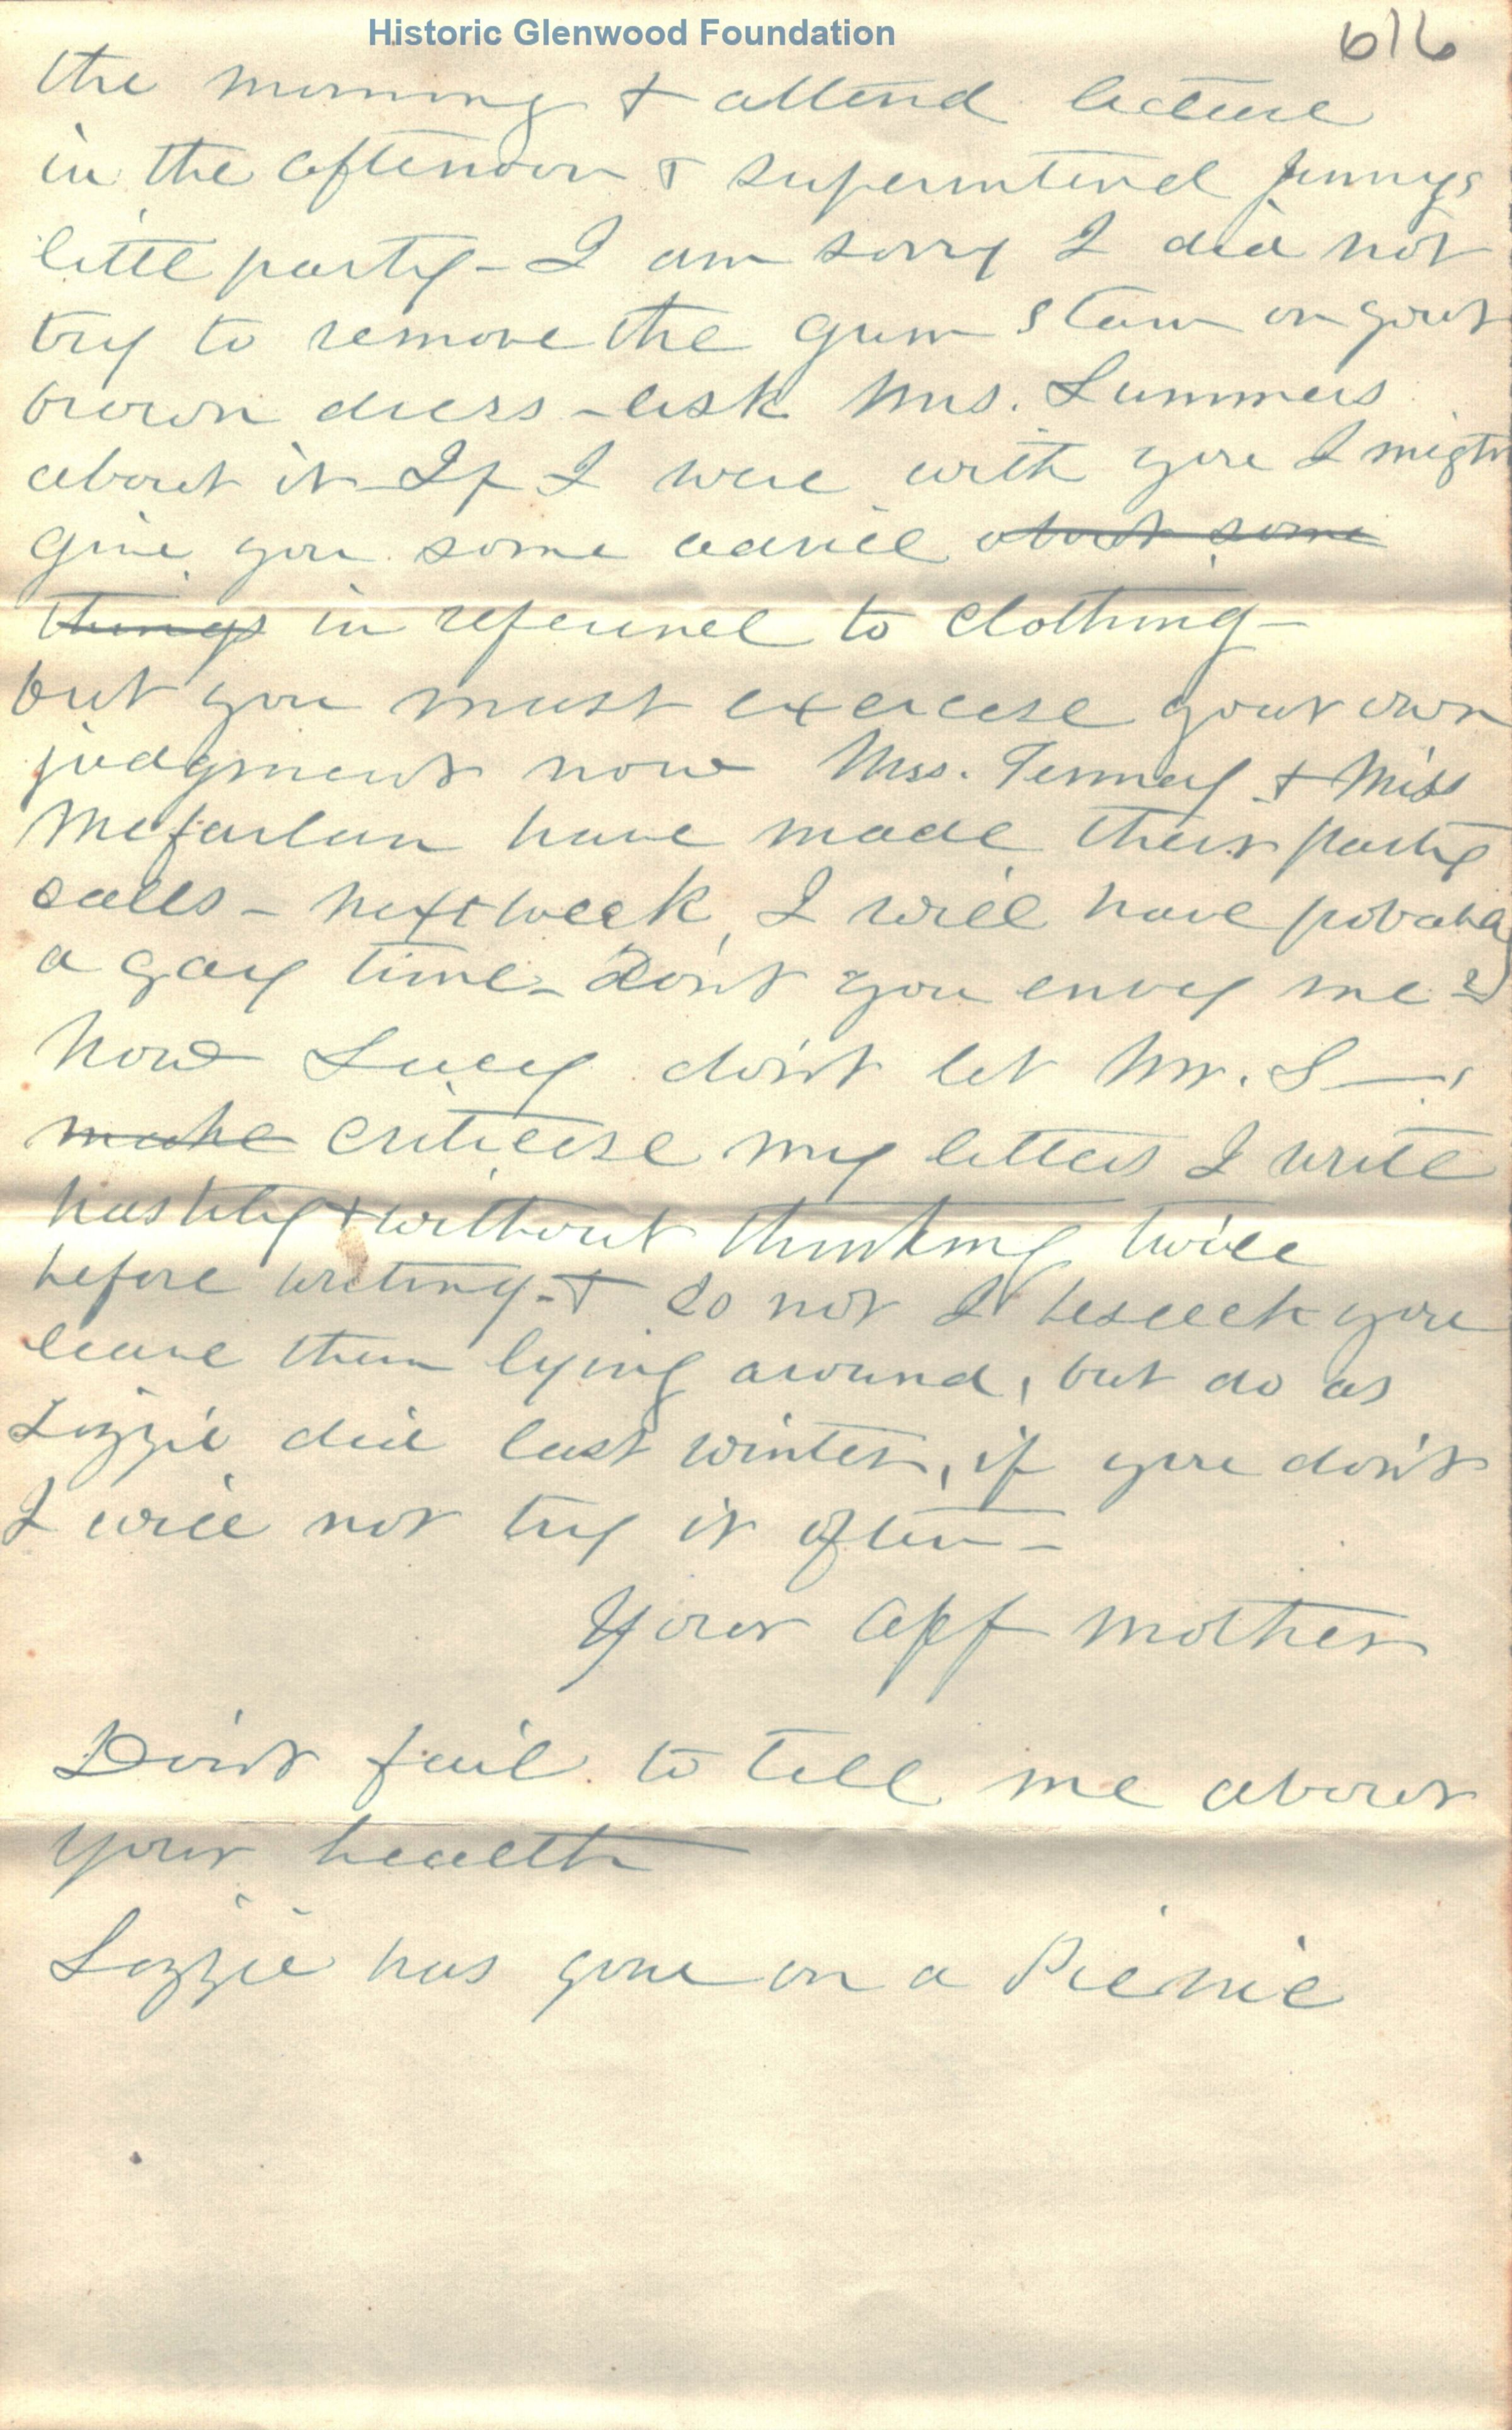 Historic Glenwood Foundation
616
the morning & attend lecture
in the afternoon & superintend Jennys
little party - I am sorry I did not
try to remove the gum stain on your
brown dress - ask Mrs. Summers
about it If I were with you I might
give you some advice about some
things in reference to clothing -
but you must exercise your own
judgment now Mrs. Tenney & Miss
Mcfarlan have made their party
calls - next week I will have probably
a gay time - Don't you envy me?
Now Lucy don't let Mr. S—
make criticise my letters I write
hastily & without thinking twice
before writing - & do not I beseech you
leave them lying around, but do as
Lizzie did last winter, if you don't
I will not try it often -
Your aff mother
Don't fail to tell me about
your health
Lizzie has gone on a Picnic